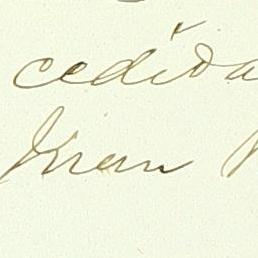 cedida
Juan